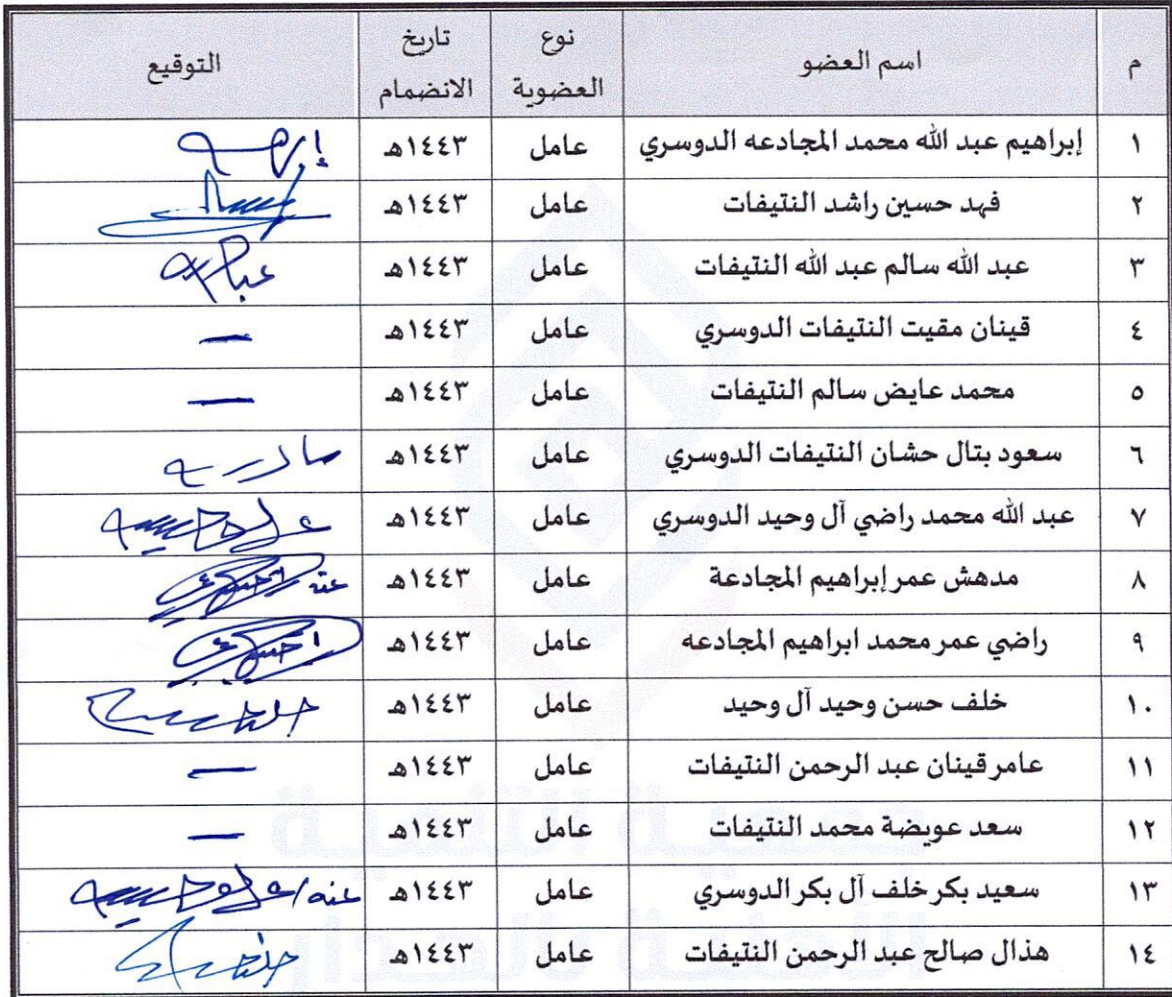 م اسم العضو نوع العضوية تاريخ الانضمام التوقيع
١ إبراهيم عبد الله محمد المجادعه الدوسري عامل ١٤٤٣هـ
٢ فهد حسين راشد النتيفات عامل ١٤٤٣هـ
٣ عبد الله سالم عبد الله النتيفات عامل ١٤٤٣هـ
٤ قينان مقيت النتيفات الدوسري عامل ١٤٤٣هـ —
٥ محمد عايض سالم النتيفات عامل ١٤٤٣هـ —
٦ سعود بتال حشان النتيفات الدوسري عامل ١٤٤٣هـ
٧ عبد الله محمد راضي آل وحيد الدوسري عامل ١٤٤٣هـ
٨ مدهش عمر إبراهيم المجادعة عامل ١٤٤٣هـ عنه
٩ راضي عمر محمد ابراهيم المجادعه عامل ١٤٤٣هـ
١٠ خلف حسن وحيد آل وحيد عامل ١٤٤٣هـ
١١ عامر قينان عبد الرحمن النتيفات عامل ١٤٤٣هـ —
١٢ سعد عويضة محمد النتيفات عامل ١٤٤٣هـ —
١٣ سعيد بكر خلف آل بكر الدوسري عامل ١٤٤٣هـ عنه/
١٤ هذال صالح عبد الرحمن النتيفات عامل ١٤٤٣هـ
جمعية التنمية
الأهلية بالهدار